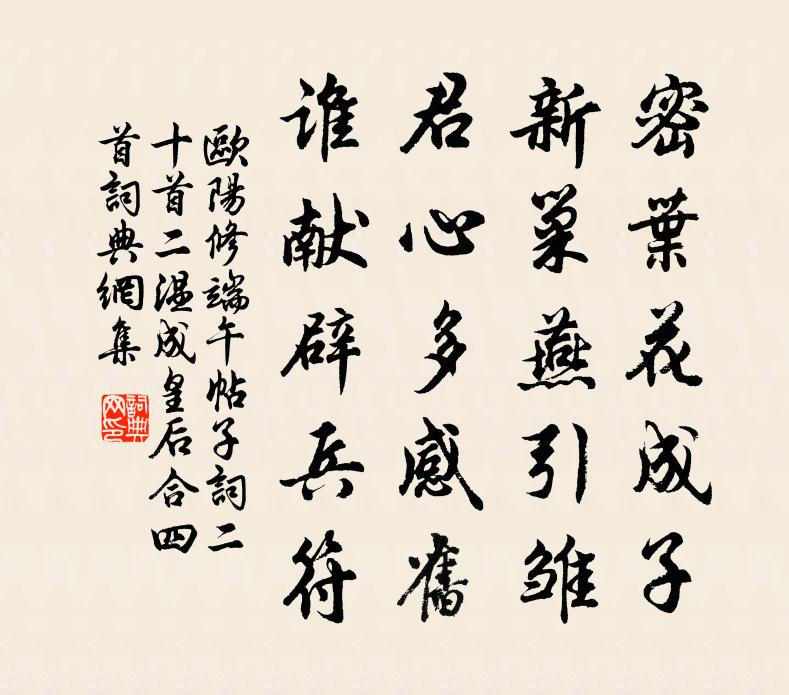 密葉花成子
新巢燕引雛
君心多感舊
谁献辟兵符
歐陽修端午帖子詞二
十首二温成皇后合四
首詞典網集
詞典网印